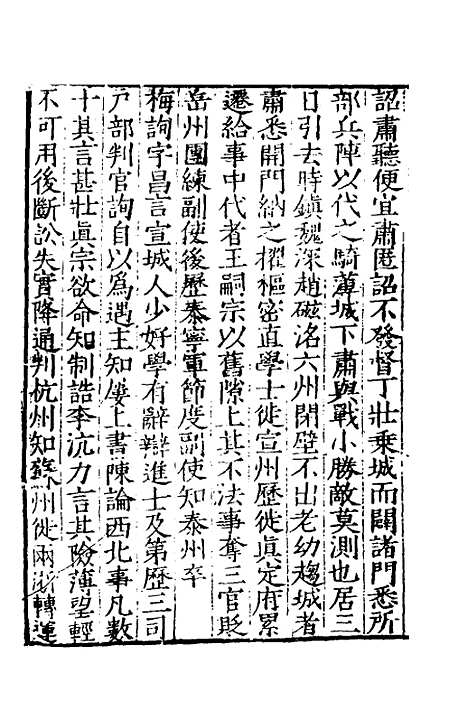 詔肅聽便宜肅匿詔不發督丁壯乘城而闢諸門悉所
部兵陣以代之騎薄城下肅與戰小勝敵莫測也居三
日引去時鎮魏深趙磁洺六州閉壁不出老幼趨城者
肅悉開門納之擢樞密直學士徙宣州歷徙眞定府累
遷給事中代者王嗣宗以舊隙上其不法事奪三官貶
岳州團練副使後歷泰寧軍節度副使知泰州卒
梅詢字昌言宣城人少好學有辭辯進士及第歷三司
戸部判官詢自以爲遇主知屢上書陳論西北事凡數
十其言甚壯眞宗欲命知制誥李沆力言其險薄望輕
不可用後斷訟失實降通判杭州知蘇州徙兩浙轉運